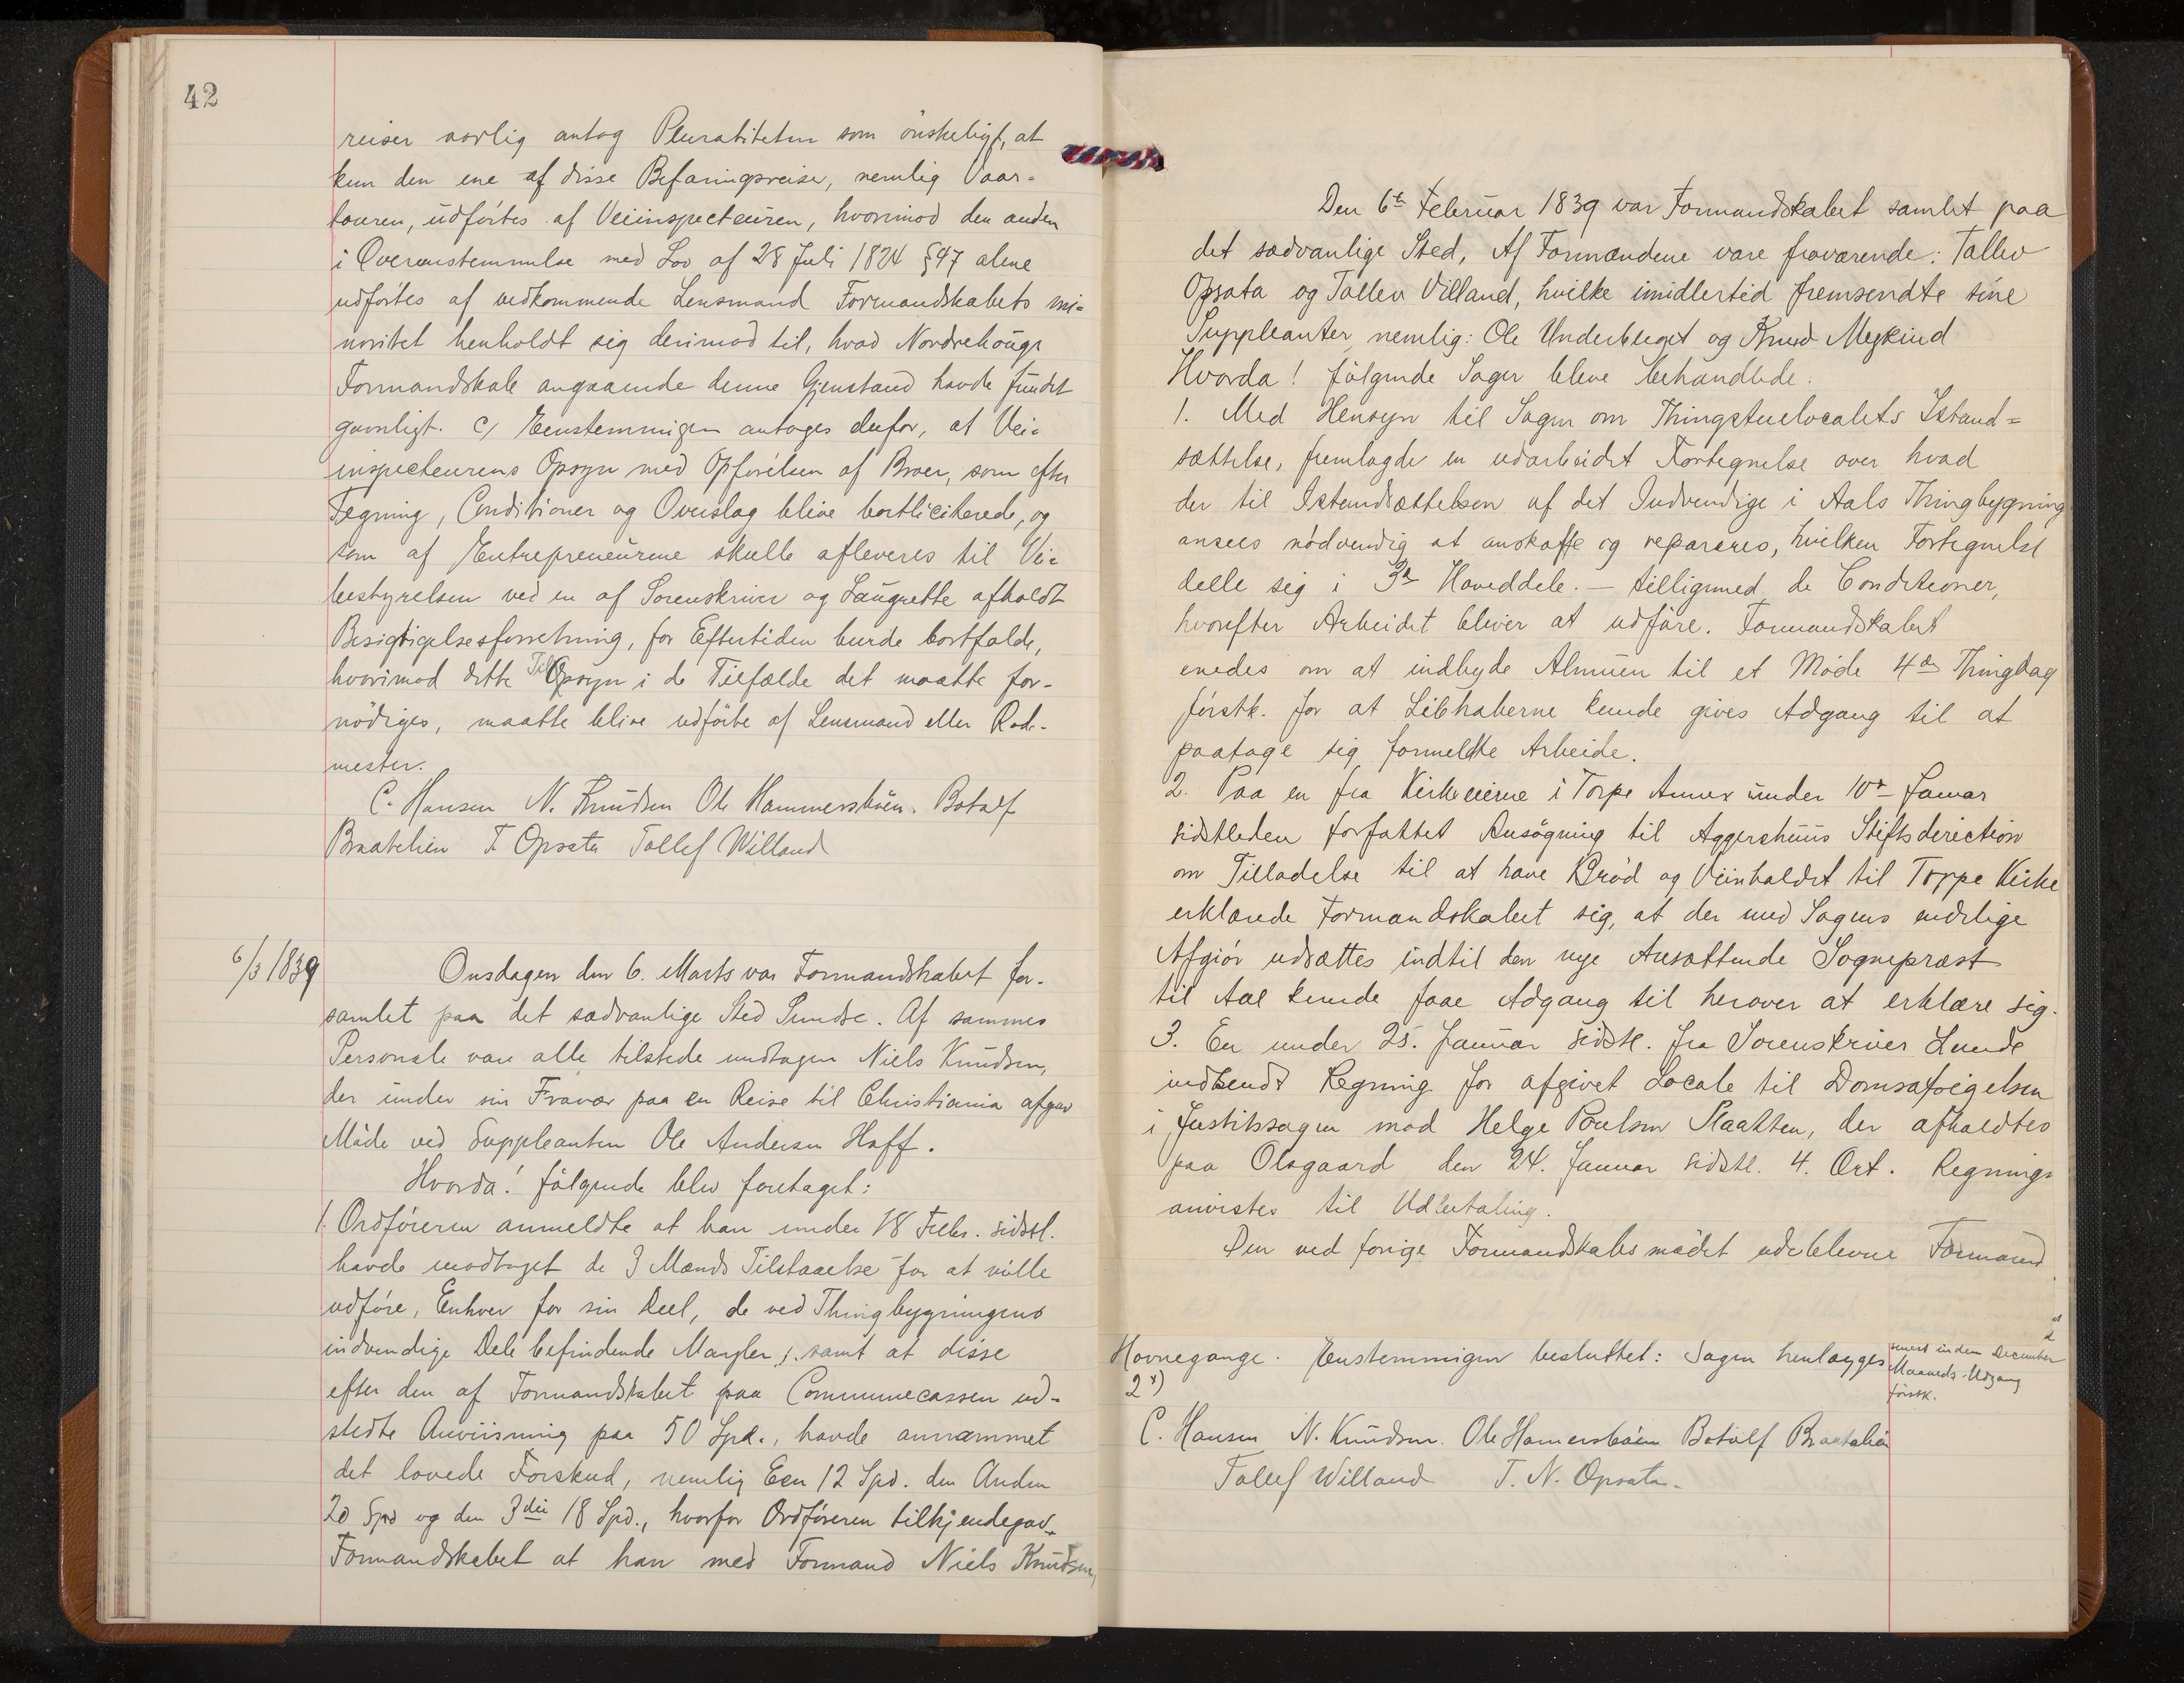 42
reiser aarlig antog Pluraliteten som önskeligt, at
kun den ene af disse Befaringsreiser, nemlig Vaar-
touren, udförtes af Veiinspecteuren, hvorimod den anden
i Overensstemmelse med Lov af 28 Juli 1824 §47 alene
udförtes af vedkommende Lensmand Formandskabets mi-
noritet henholdt sig derimod til, hvad Nordrehougs
Formandskab angaaende denne Gjenstand havde fundet
gavnligt. c) Eenstemmigen antoges derfor, at Vei-
inspecteurens Opsyn med Opförelsen af Broer, som efter
Tegning, Conditioner og Overslag blive bortliciterede, og
som af Entrepreneurene skulle afleveres til Vei-
bestyrelsen ved en af Sorenskriver og Laugrette afholdt
Besigtigelsesforretning, for Eftertiden burde bortfalde,
hvorimod dette Til Opsyn i de Tilfælde det maatte for-
nödiges, maatte blive udförte af Lensmand eller Rode-
mester.
C. Hansen N. Knudsen Ole Hammersböen. Botolf
Braatelien T Opsata Tollef Willand
6/3 1839
Onsdagen den 6. Marts var Formandskabet for-
samlet paa det sædvanlige Sted Sundre. Af sammes
Personale vare alle tilstede undtagen Niels Knudsen,
der under sin Fravær paa en Reise til Christiania afgav
Möde ved Suppleanten Ole Andersen Hoff.
Hvorda! fölgende blev foretaget:
1. Ordföreren anmeldte at han under 18 Febr. sidstl.
havde modtaget de 3 Mænds Tilstaaelse for at ville
udföre, Enhver for sin Deel, de ved Thingbygningens
indvendige Dele befindende Mangler, samt at disse
efter den af Formandskabet paa Communecassen ud-
stedte Anviisning paa 50 Spd., havde annammet
det lovede Forskud, nemlig Een 12 Spd. den Anden
20 Spd og den 3die 18 Spd., hvorfor Ordföreren tilkjendegav
Formandskabet at han med Formand Niels Knudsen,
Den 6te Februar 1839 var Formandskabet samlet paa
det sædvanlige Sted, Af Formændene vare fraværende: Tallev
Opsata og Tollev Villand, hvilke imidlertid fremsendte sine
Suppleanter, nemlig: Ole Underberget og Knud Megkind
Hvorda! fölgende Sager bleve behandlede:
1. Med Hensyn til Sagen om Thingstuelocalets Istand=
sættelse, fremlagde en udarbeidet Fortegnelse over hvad
der til Istandsættelsen af det Indvendige i Aals Thingbygning
ansees nödvendig at anskaffe og repareres, hvilken Fortegnelse
delle sig i 3de Hoveddele. — tilligemed de Conditioner,
hvorefter Arbeidet bliver at udföre. Formandskabet
enedes om at indbyde Almuen til et Möde 4de Thingdag
förstk. for at Libhaberne kunde gives Adgang til at
paatage sig formeldte Arbeide.
2. Paa en fra Kirkeeierne i Torpe Annex under 10de Januar
sidstleden forfattet Ansögning til Aggershuus Stiftsdirection
om Tilladelse til at have Bröd og Viinholdet til Torpe Kirke
erklærede Formandskabet sig, at der med Sagens endelige
Afgiör udsættes indtil den nye Ansættende Sognepræst
til Aal kunde faae Adgang til herover at erklære sig.
3. En under 25. Januar sidstl. fra Sorenskriver Lunde
indsendt Regning for afgivet Locale til Domsafsigelsen
i Justitssagen mod Helge Poulsen Slaatten, der afholdtes
paa Olsgaard den 24. Januar sidstl. 4. Ort. Regnings
anvistes til Udbetaling.
Den ved forige Formandskabsmödet udeblevne Formand
Havnegange. Eenstemmigen besluttet: Sagen henlægges
senest inden December
Maaneds Udgang
förstk.
2 x)
C. Hansen N. Knudsen. Ole Hamersböen Botolf Braatelien
Tollef Willand T. N. Opsata.